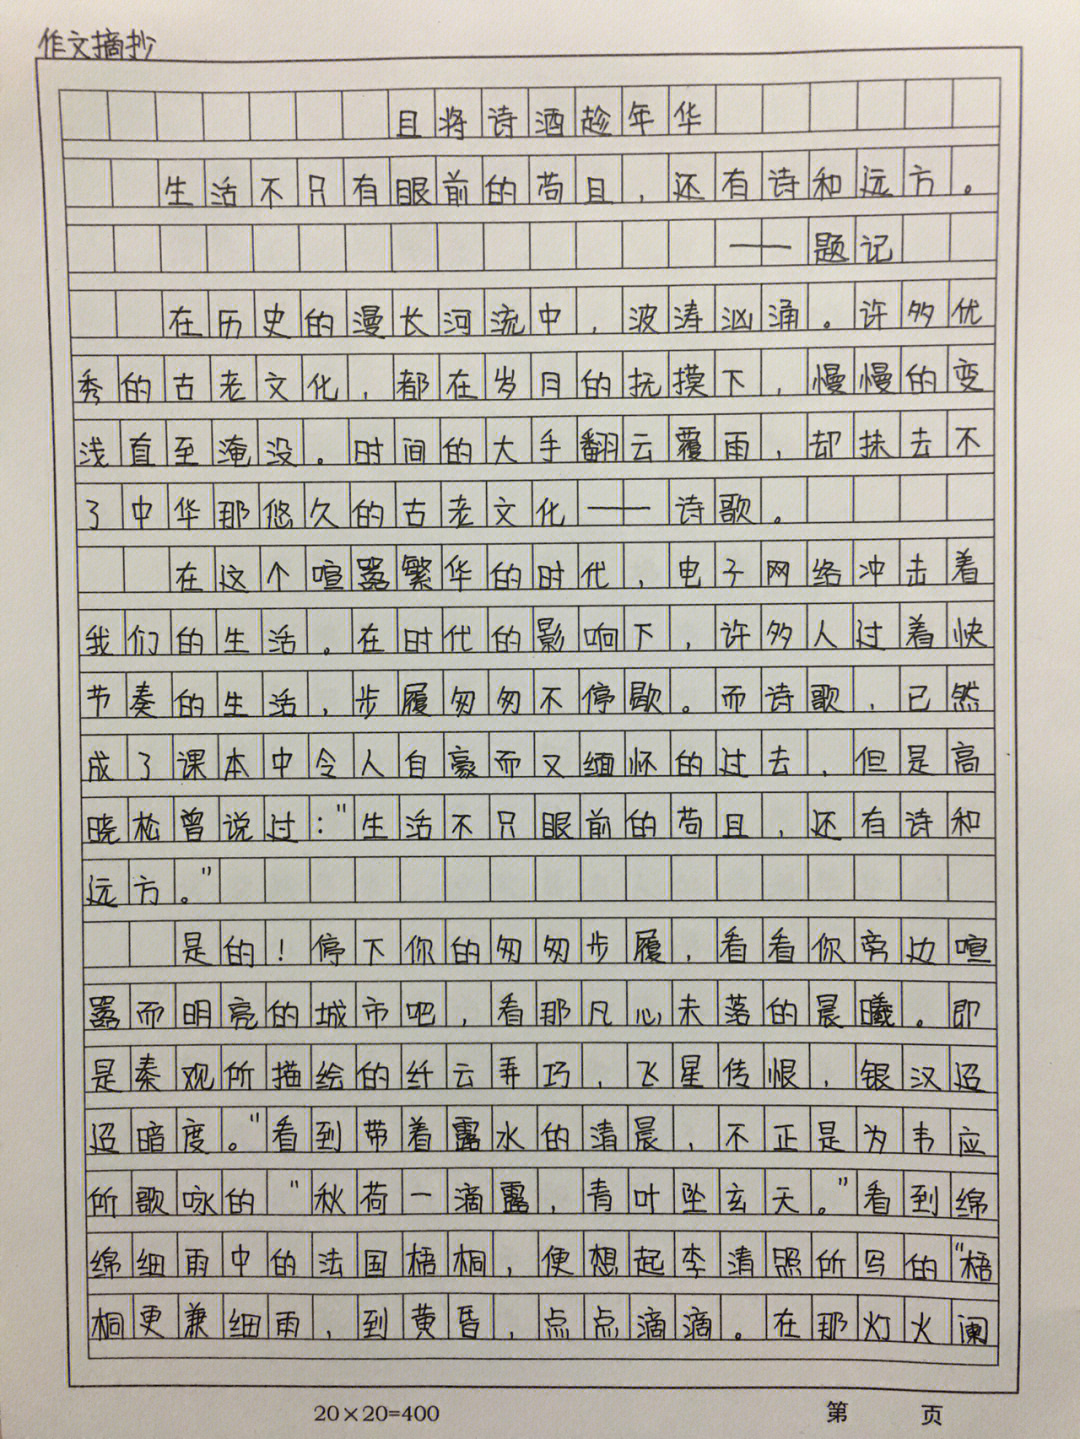 作文摘抄
且将诗酒趁年华
生活不只有眼前的苟且，还有诗和远方。
——题记
在历史的漫长河流中，波涛汹涌。许多优
秀的古老文化，都在岁月的抚摸下，慢慢的变
浅直至淹没。时间的大手翻云覆雨，却抹去不
了中华那悠久的古老文化——诗歌。
在这个喧嚣繁华的时代，电子网络冲击着
我们的生活。在时代的影响下，许多人过着快
节奏的生活，步履匆匆不停歇。而诗歌，已然
成了课本中令人自豪而又缅怀的过去，但是高
晓松曾说过："生活不只眼前的苟且，还有诗和
远方。"
是的！停下你的匆匆步履，看看你旁边喧
嚣而明亮的城市吧，看那凡心未落的晨曦。即
是秦观所描绘的纤云弄巧，飞星传恨，银汉迢
迢暗度。"看到带着露水的清晨，不正是为韦应
所歌咏的"秋荷一滴露，青叶坠玄天。"看到绵
绵细雨中的法国梧桐，便想起李清照所写的"梧
桐更兼细雨，到黄昏，点点滴滴。在那灯火阑
20×20=400
第 页